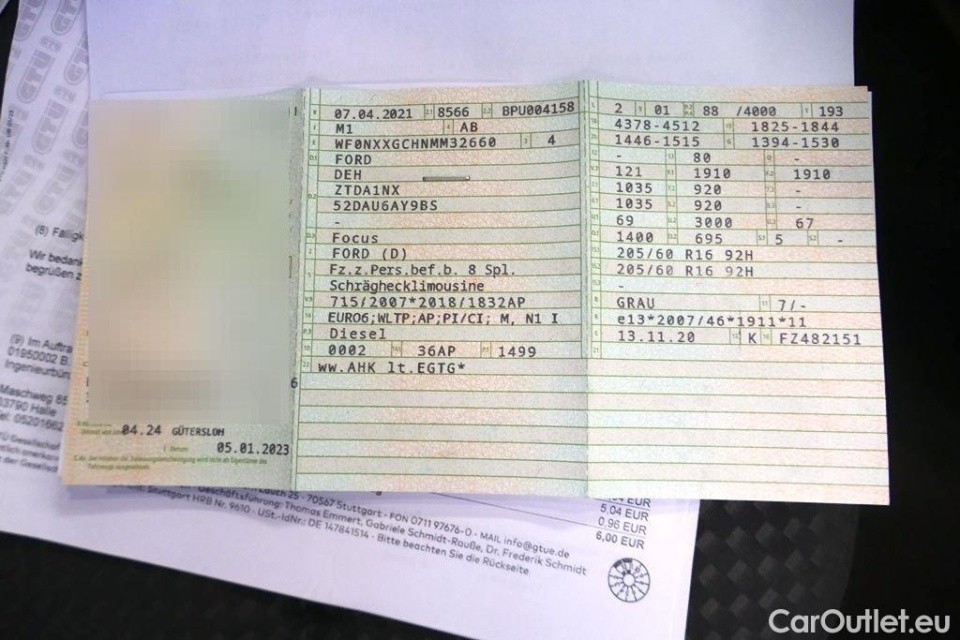 07.04.2021 8566 BPU004158
M1 AB
WF0NXXGCHNMM32660 4
FORD
DEH
ZTDA1NX
52DAU6AY9BS
-
Focus
FORD (D)
Fz.z.Pers.bef.b. 8 Spl.
Schräghecklimousine
715/2007*2018/1832AP
EURO6;WLTP;AP;PI/CI; M, N1 I
Diesel
0002 36AP 1499
ww.AHK lt.EGTG*
2 01 88 /4000 193
4378-4512 1825-1844
1446-1515 1394-1530
- 80 -
121 1910 1910
1035 920 -
1035 920 -
69 3000 67
1400 695 5 -
205/60 R16 92H
205/60 R16 92H
-
GRAU 7/-
e13*2007/46*1911*11
13.11.20 K FZ482151
04.24 GÜTERSLOH
05.01.2023
6
GTÜ
(8) Fälligk
Wir bedank
begrüßen z
(9) Im Auftra
01950002 B
Ingenieurbür
Maschweg 85
33790 Halle
Tel: 05201662
70567 Stuttgart - FON 0711 97676-0 - MAIL info@gtue.de
Geschäftsführung: Thomas Emmert, Gabriele Schmidt-Rauße, Dr. Frederik Schmidt
Stuttgart HRB Nr. 9610 - USt.-IdNr.: DE 147841514 - Bitte beachten Sie die Rückseite
EUR
5,04 EUR
0,96 EUR
6,00 EUR
CarOutlet.eu